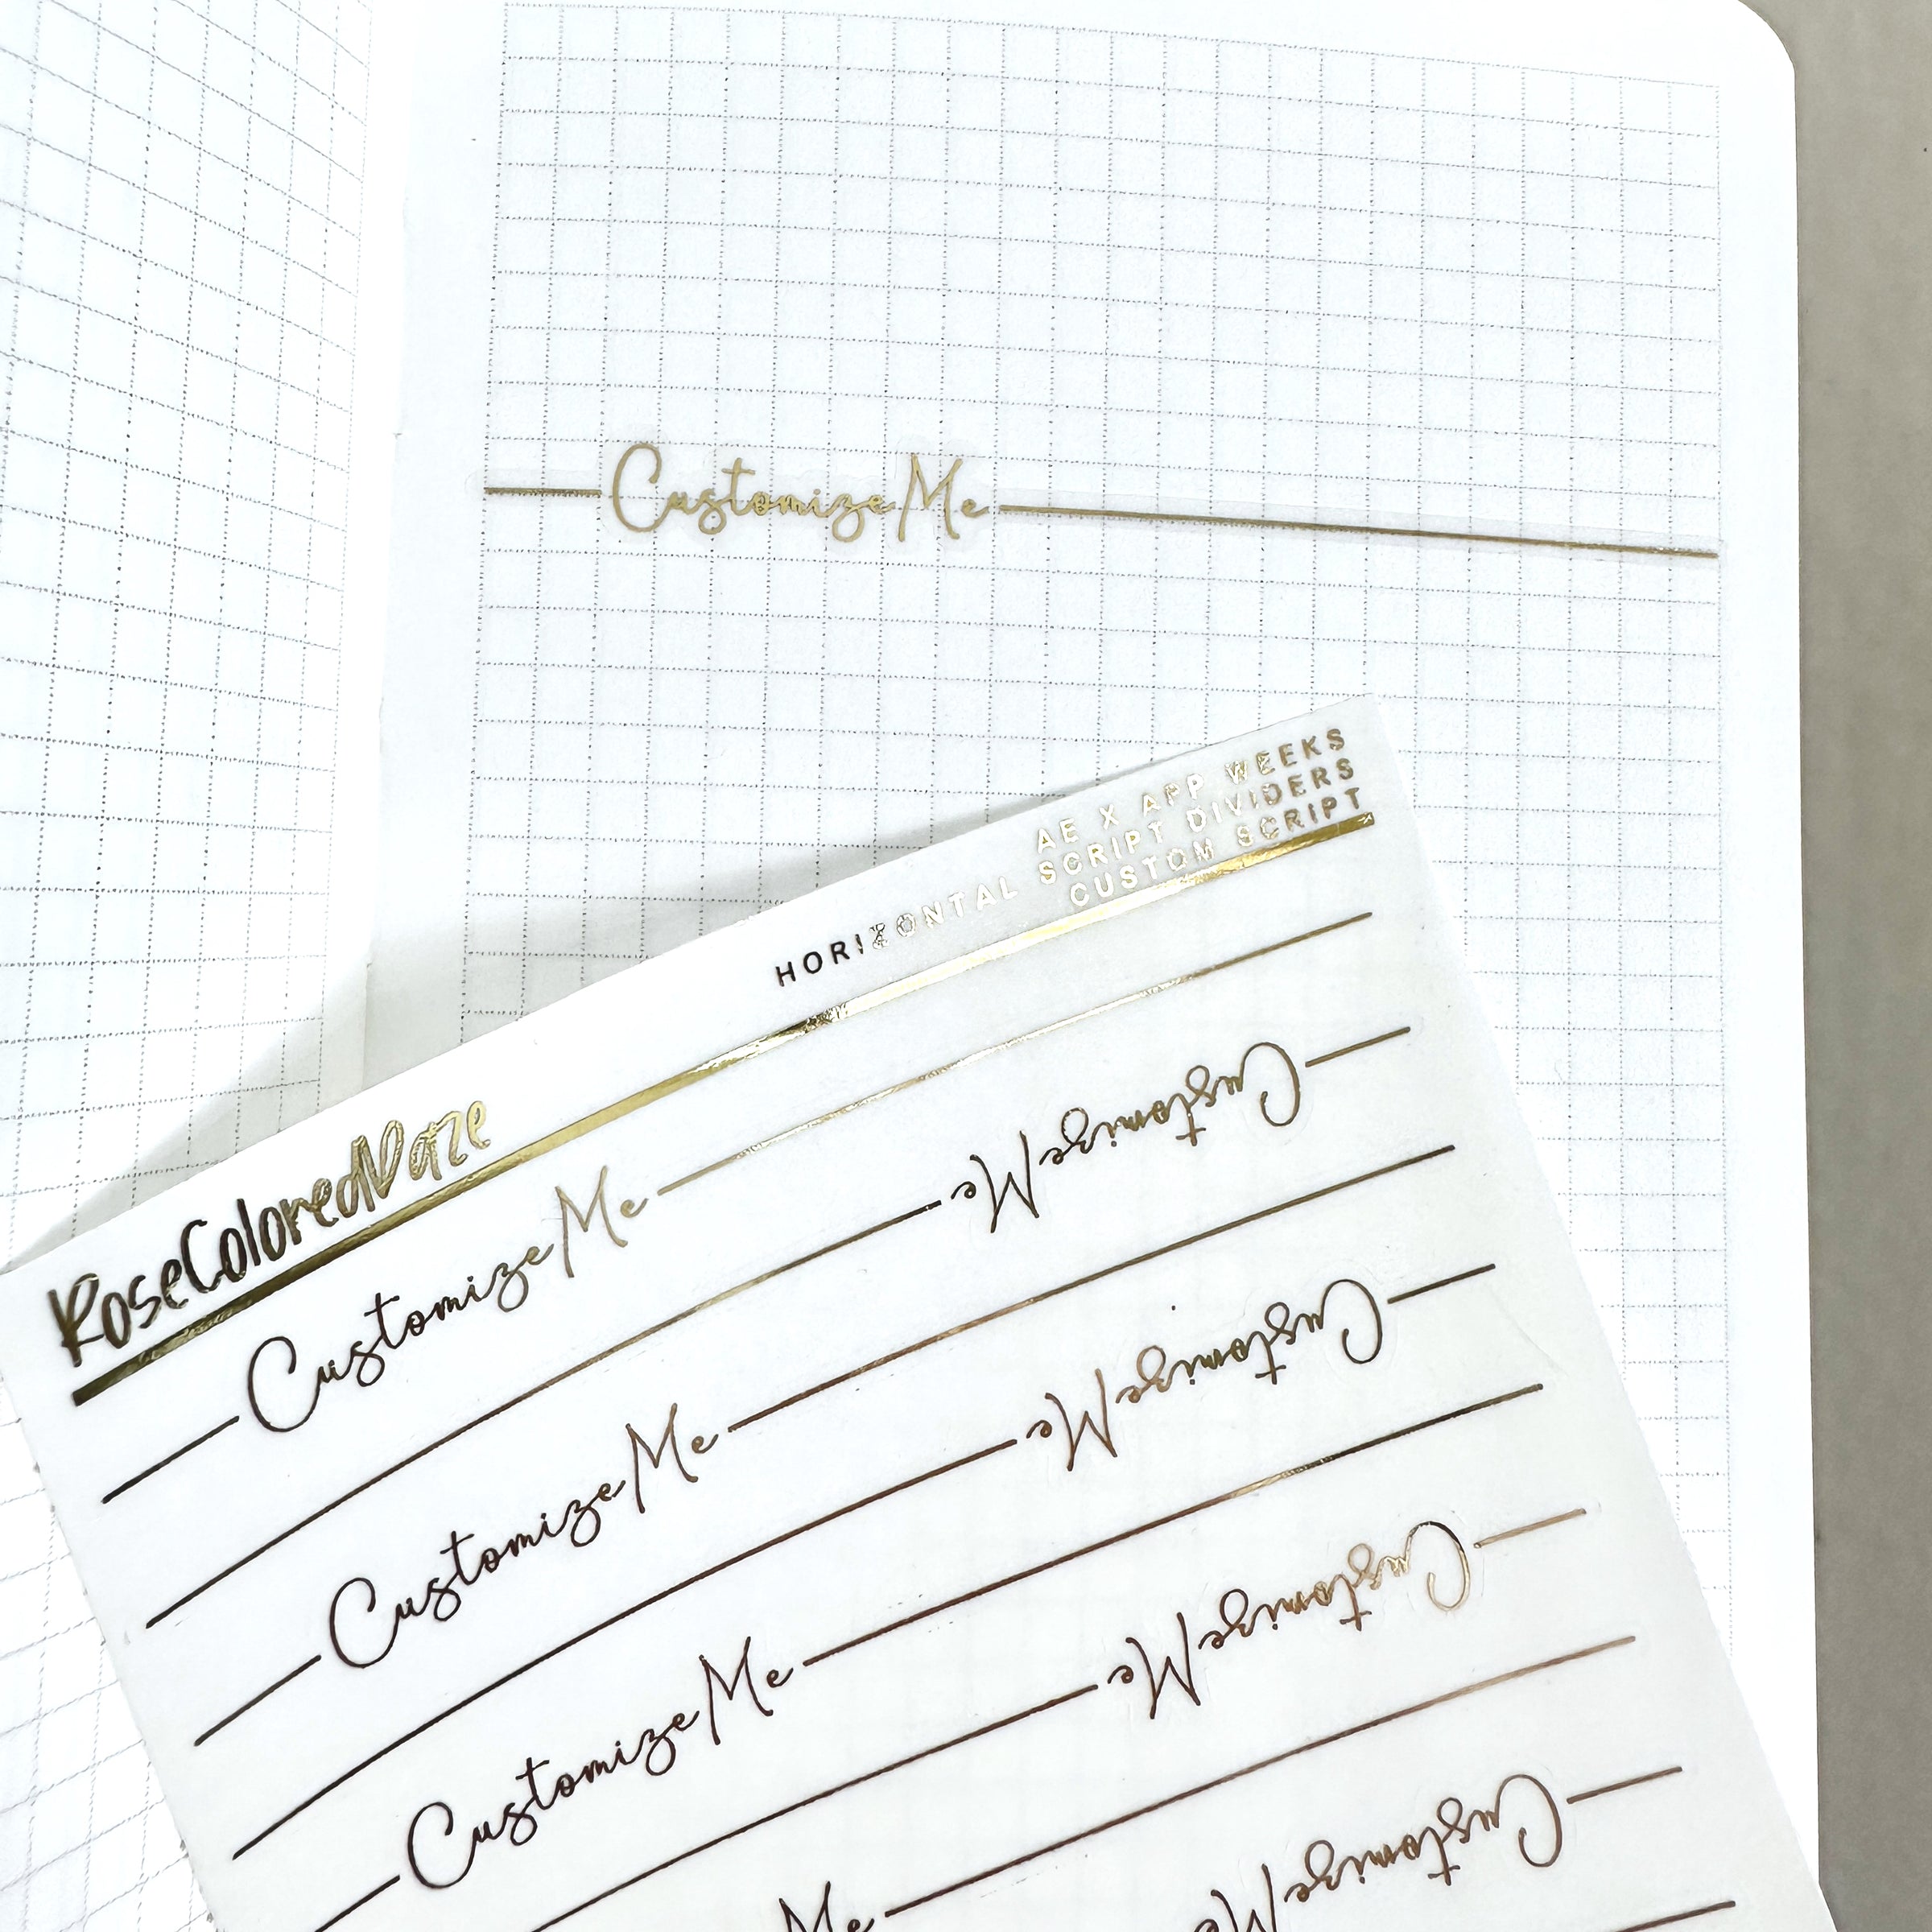 Customize Me
AE X APP WEEKS
HORIZONTAL SCRIPT DIVIDERS
CUSTOM SCRIPT
RoseColoredDaze
Customize Me
Customize Me
Customize Me
Customize Me
Customize Me
Customize Me
Me
Customize Me